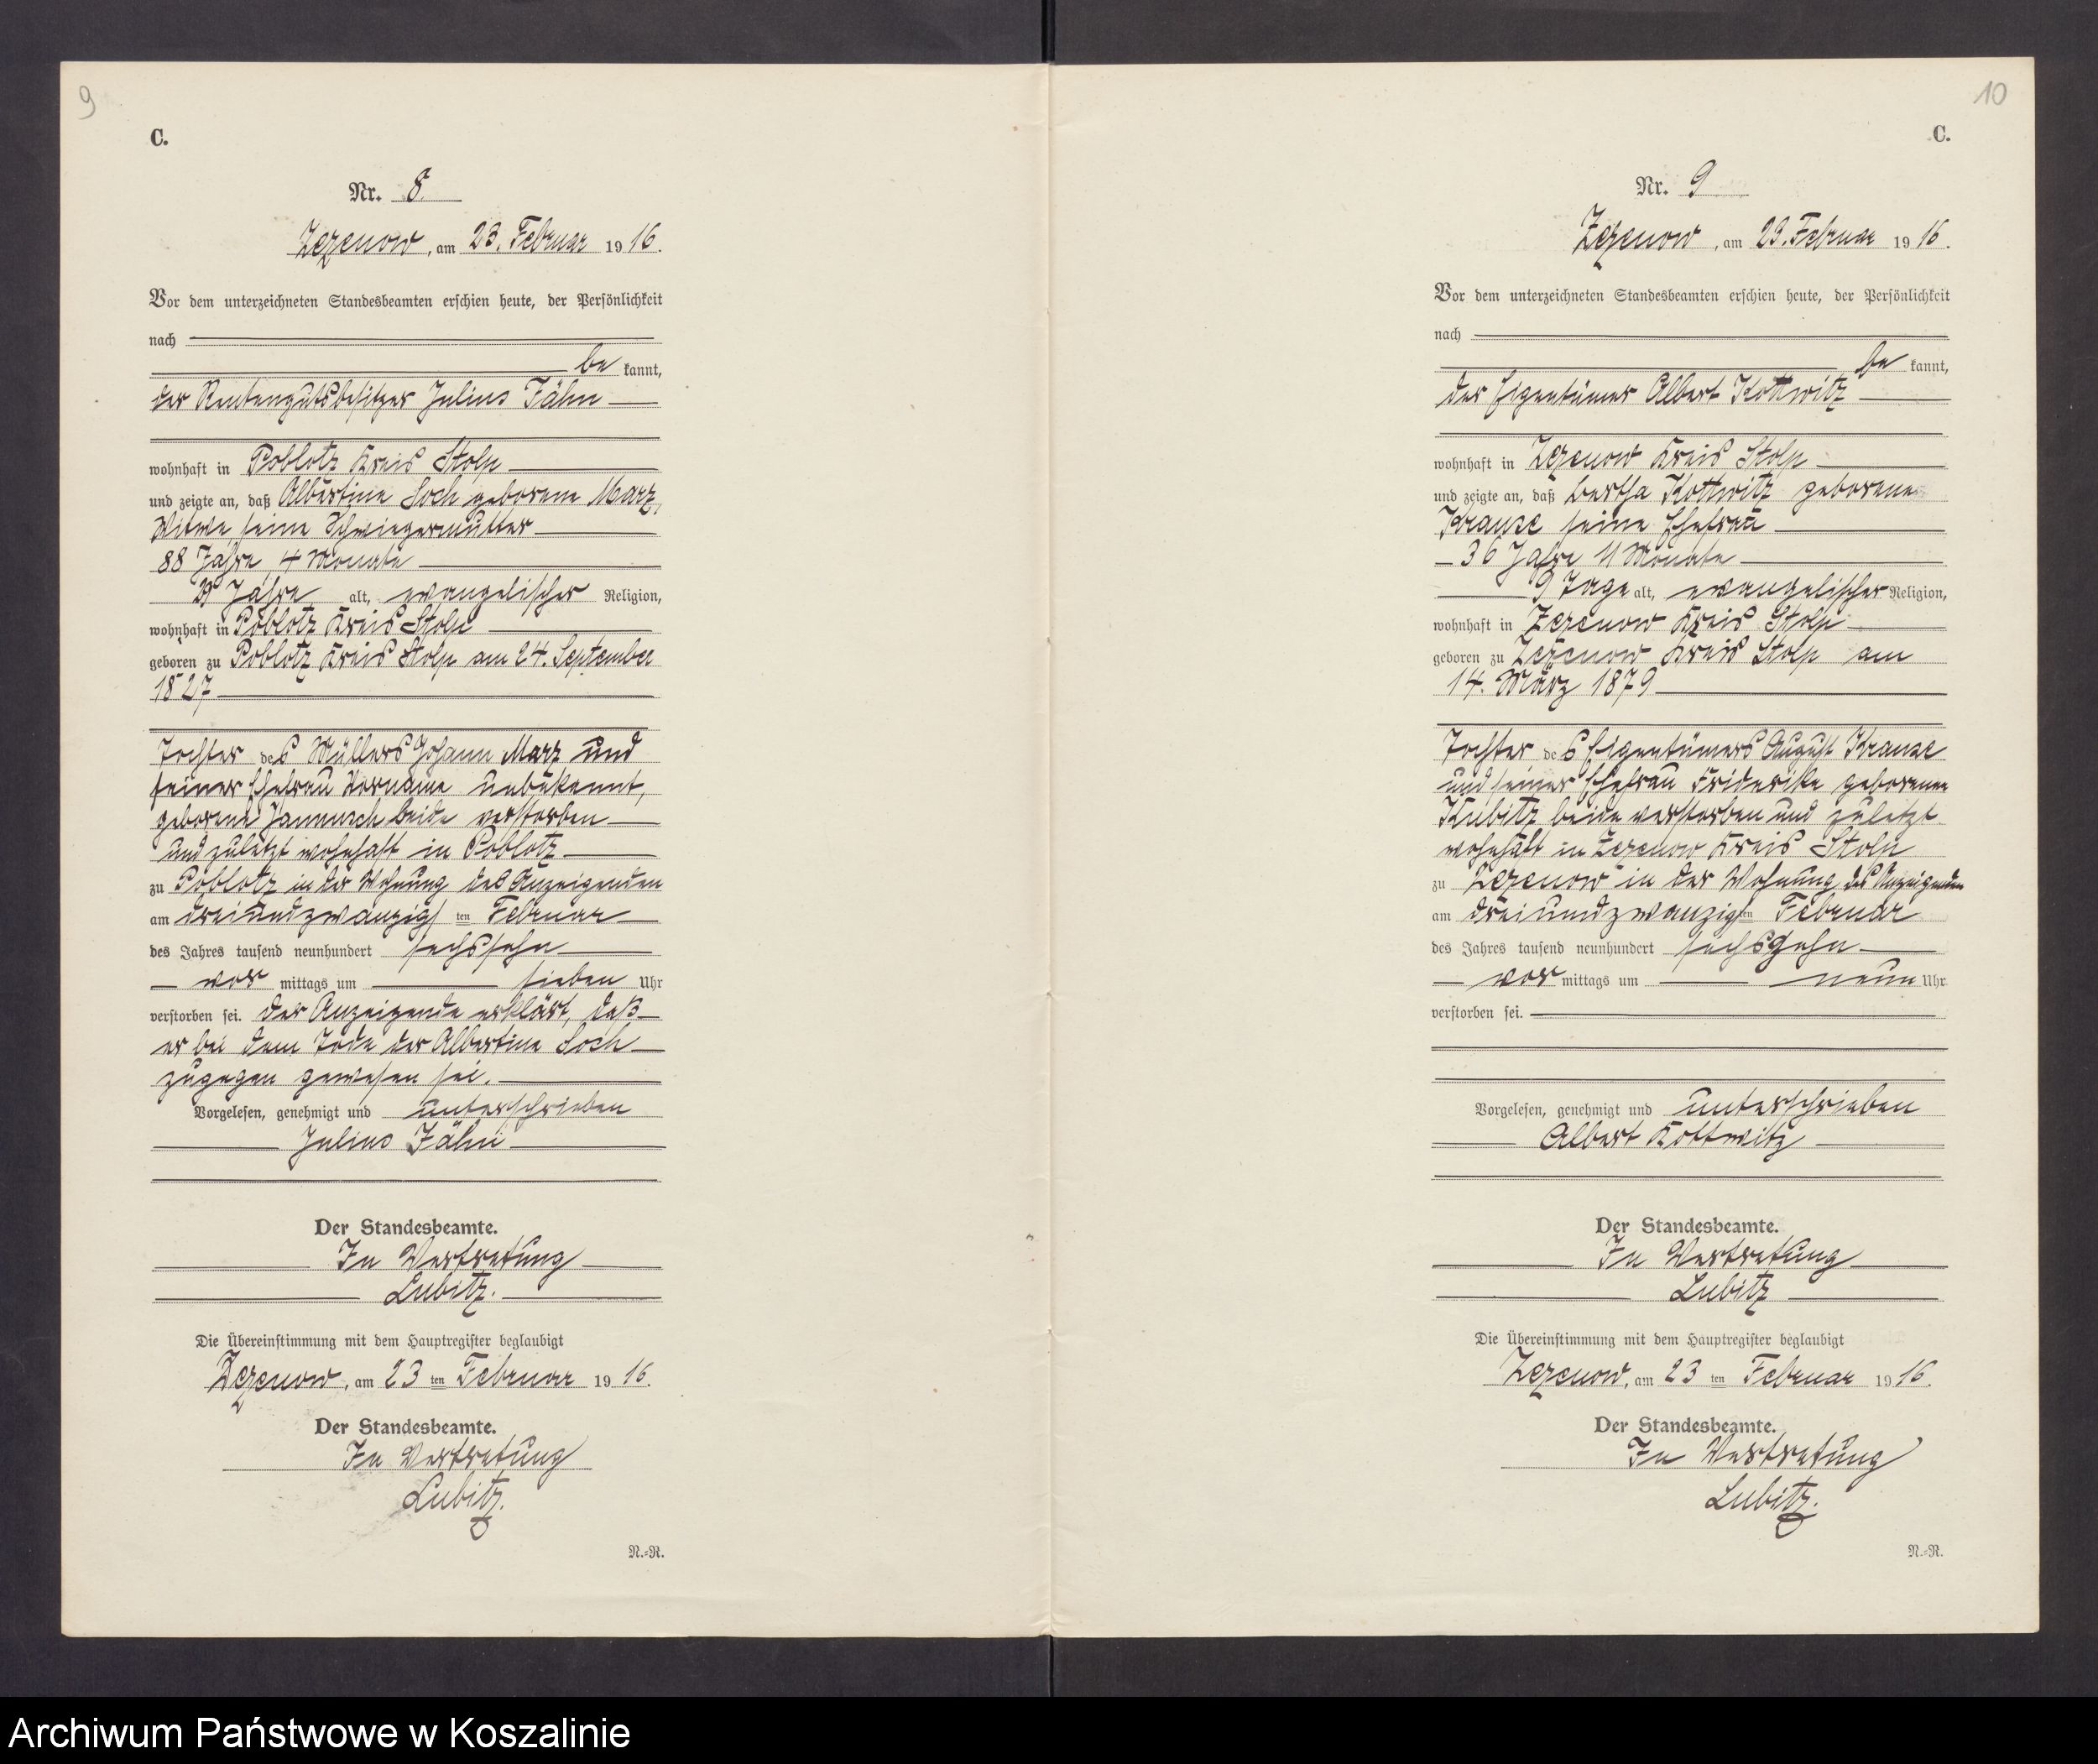 9
C.
Nr. 8.
Zezenow, am 23. Februar 1916.
Vor dem unterzeichneten Standesbeamten erschien heute, der Persönlichkeit
nach
be kannt,
der Rentengutsbesitzer Julius Fähn
wohnhaft in Poblotz Kreis Stolp
und zeigte an, daß Albertine Soch geborene Marz,
Witwe, seine Schwiegermutter
88 Jahre, 4 Monate
29 Jahre alt, evangelischer Religion,
wohnhaft in Poblotz Kreis Stolp
geboren zu Poblotz Kreis Stolp am 24. September
1827
Tochter des Müllers Johann Marz und
seiner Ehefrau Vorname unbekannt,
geborene beide verstorben
und zuletzt wohnhaft in Poblotz
zu Poblotz in der Wohnung des Anzeigenden
am dreiundzwanzigsten Februar
des Jahres tausend neunhundert sechszehn
vor mittags um sieben Uhr
verstorben sei. Der Anzeigende erklärt, daß
er bei dem Tode der Albertine Soch
zugegen gewesen sei.
Vorgelesen, genehmigt und unterschrieben
Julius Fähn
Der Standesbeamte.
In Vertretung
Lubitz.
Die Übereinstimmung mit dem Hauptregister beglaubigt
Zezenow, am 23 ten Februar 1916.
Der Standesbeamte.
In Vertretung
Lubitz.
N.=R.
10
C.
Nr. 9
Zezenow, am 23. Februar 1916.
Vor dem unterzeichneten Standesbeamten erschien heute, der Persönlichkeit
nach
be kannt,
der Eigentümer Albert Kottwitz
wohnhaft in Zezenow Kreis Stolp
und zeigte an, daß Bertha Kottwitz geborene
Krause seine Ehefrau
36 Jahre 11 Monate
9 Tage alt, evangelischer Religion,
wohnhaft in Zezenow Kreis Stolp
geboren zu Zezenow Kreis Stolp am
14. März 1879
Tochter des Eigentümers August Krause
und seiner Ehefrau Friderike geborenen
Kubitz beide verstorben und zuletzt
wohnhaft in Zezenow Kreis Stolp
zu Zezenow in der Wohnung des Anzeigenden
am dreiundzwanzigsten Februar
des Jahres tausend neunhundert sechszehn
vor mittags um neun Uhr
verstorben sei.
Vorgelesen, genehmigt und unterschrieben
Albert Kottwitz
Der Standesbeamte.
In Vertretung
Lubitz
Die Übereinstimmung mit dem Hauptregister beglaubigt
Zezenow, am 23 ten Februar 1916.
Der Standesbeamte.
In Vertretung
Lubitz.
N.=R.
Archiwum Państwowe w Koszalinie